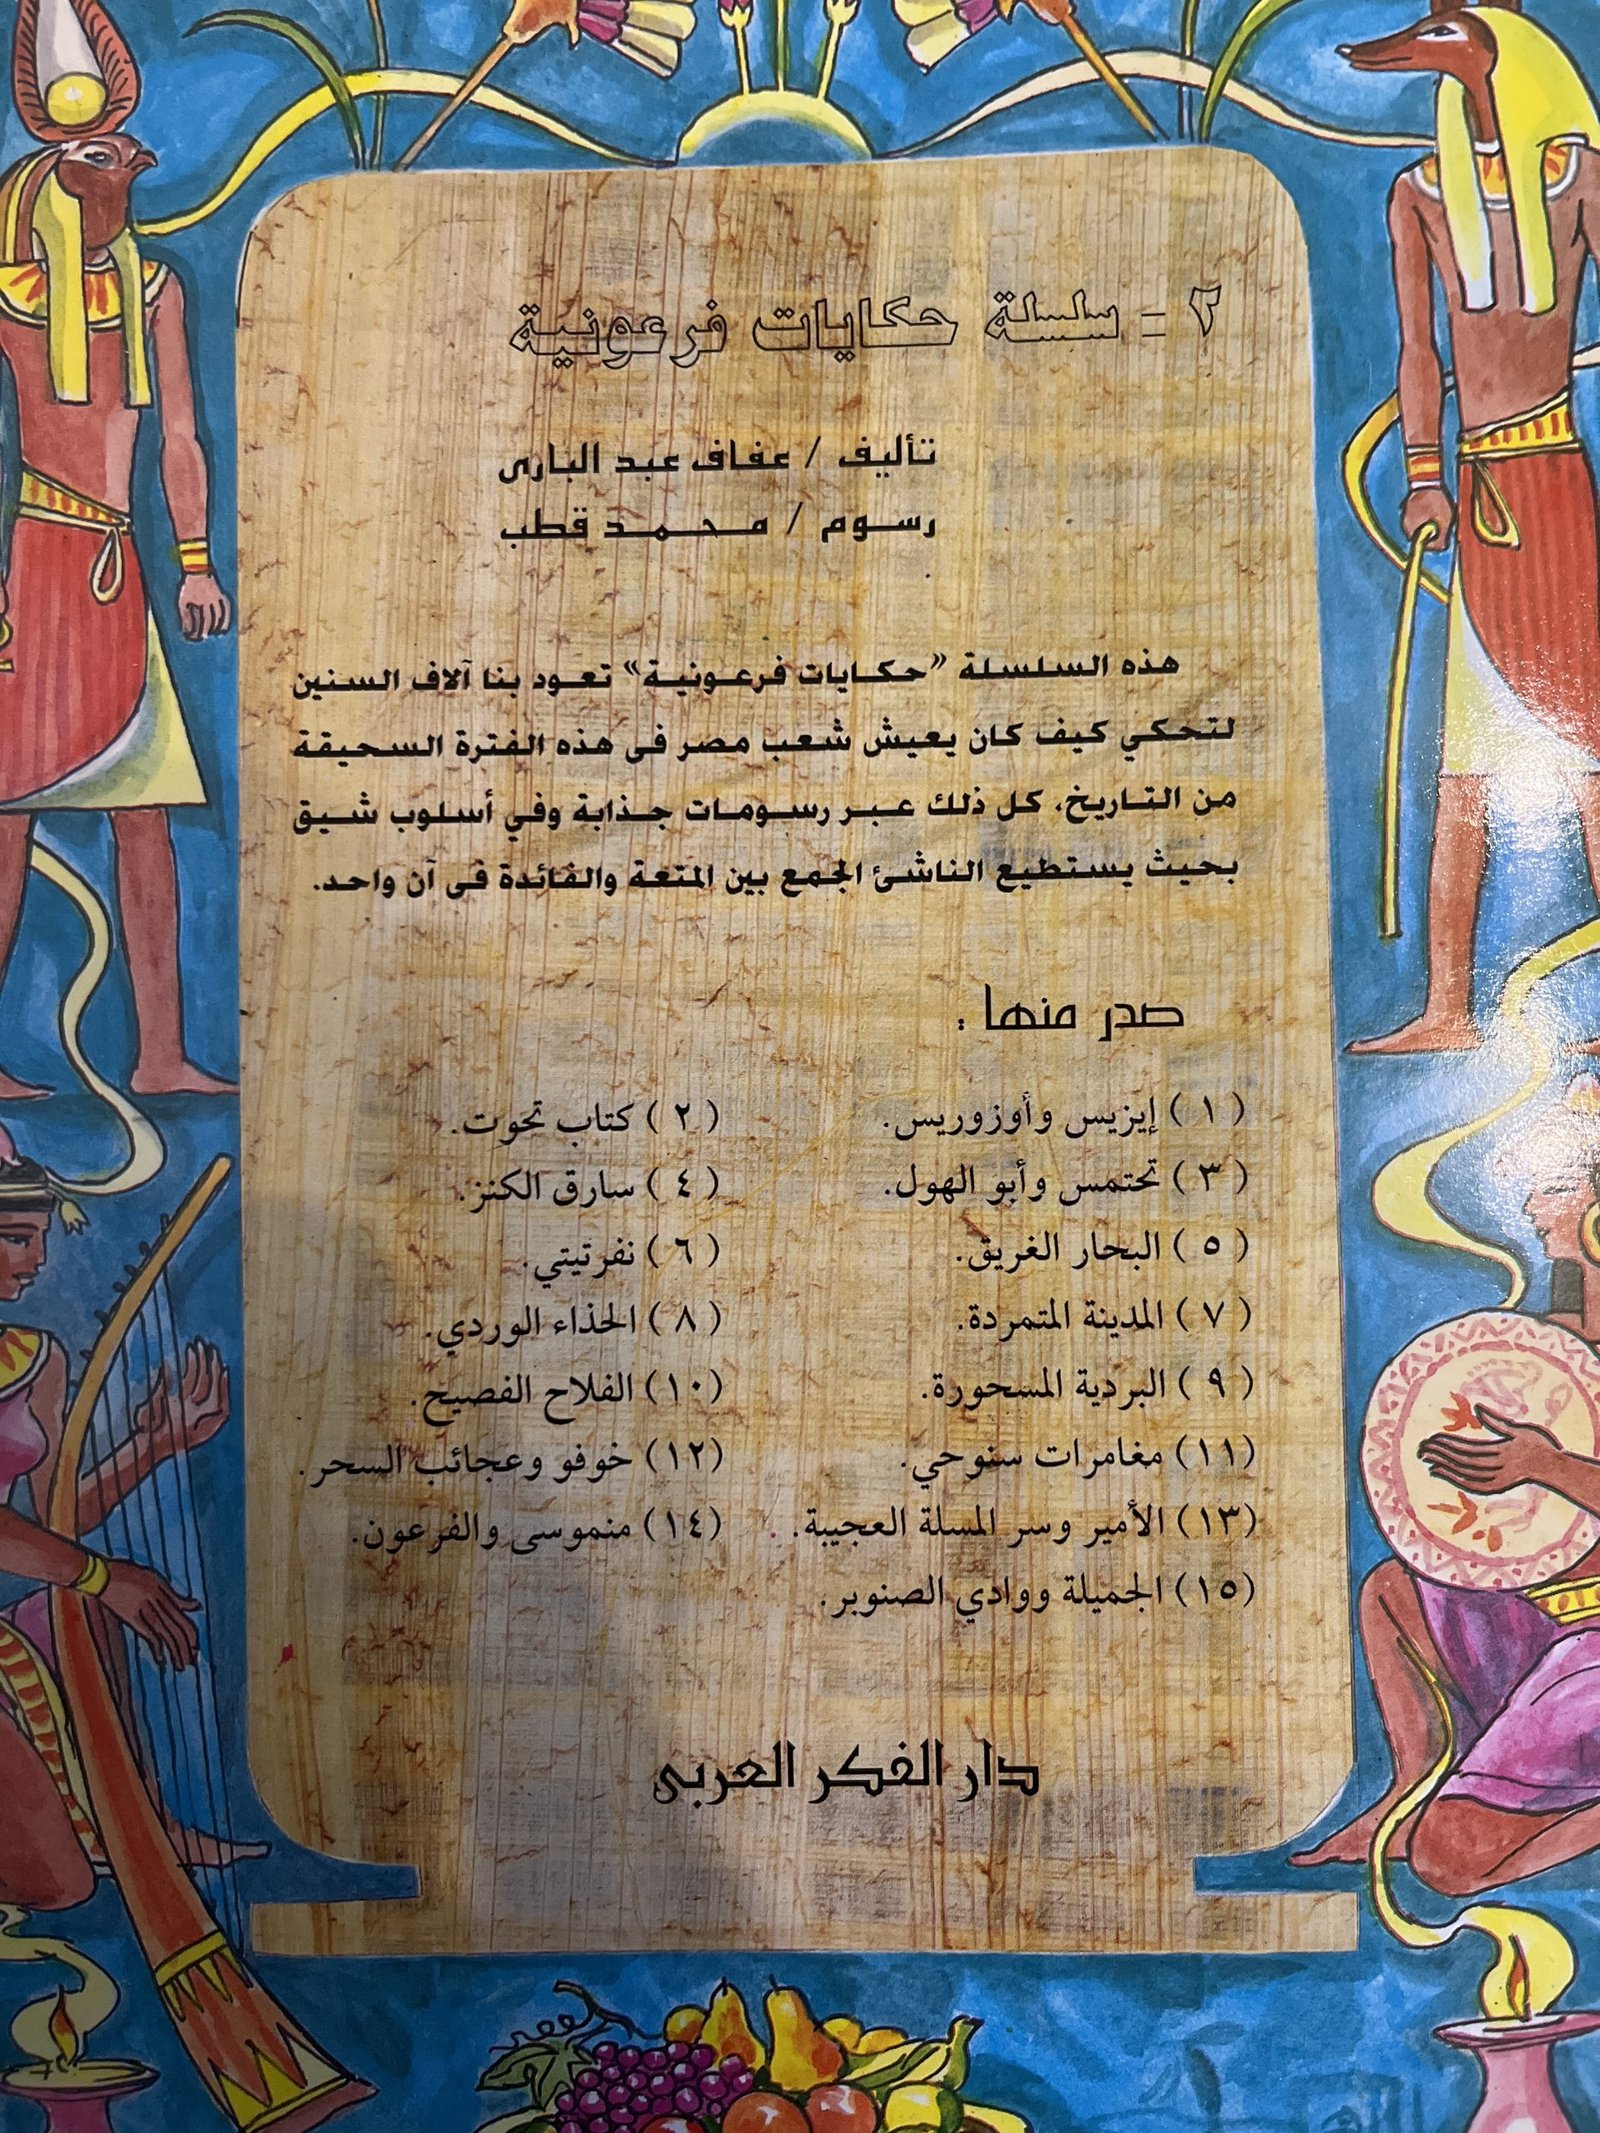 ٢ - سلسلة حكايات فرعونية
تأليف / عفاف عبد البارى
رسوم / محمد قطب
هذه السلسلة «حكايات فرعونية» تعود بنا آلاف السنين
لتحكي كيف كان يعيش شعب مصر فى هذه الفترة السحيقة
من التاريخ. كل ذلك عبر رسومات جذابة وفي أسلوب شيق
بحيث يستطيع الناشئ الجمع بين المتعة والفائدة فى آن واحد.
صدر منها :
( ١ ) إيزيس وأوزوريس. ( ٢ ) كتاب تحوت.
( ٣ ) تحتمس وأبو الهول. ( ٤ ) سارق الكنز.
( ٥ ) البحار الغريق. ( ٦ ) نفرتيتي.
( ٧ ) المدينة المتمردة. ( ٨ ) الحذاء الوردي.
( ٩ ) البردية المسحورة. (١٠) الفلاح الفصيح.
(١١) مغامرات سنوحي. (١٢) خوفو وعجائب السحر.
(١٣) الأمير وسر المسلة العجيبة. (١٤) منموسى والفرعون.
(١٥) الجميلة ووادي الصنوبر.
دار الفكر العربى